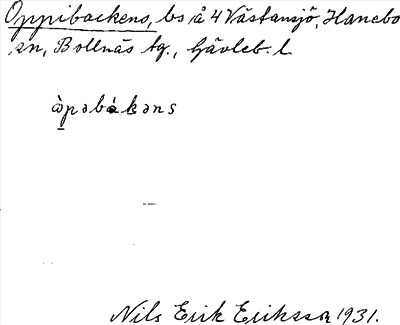 Oppibackens, bs å 4 Västansjö, Hanebo
sn, Bollnäs tg., Gävleb. l.
àpəbákəns
Nils Erik Eriksson 1931.